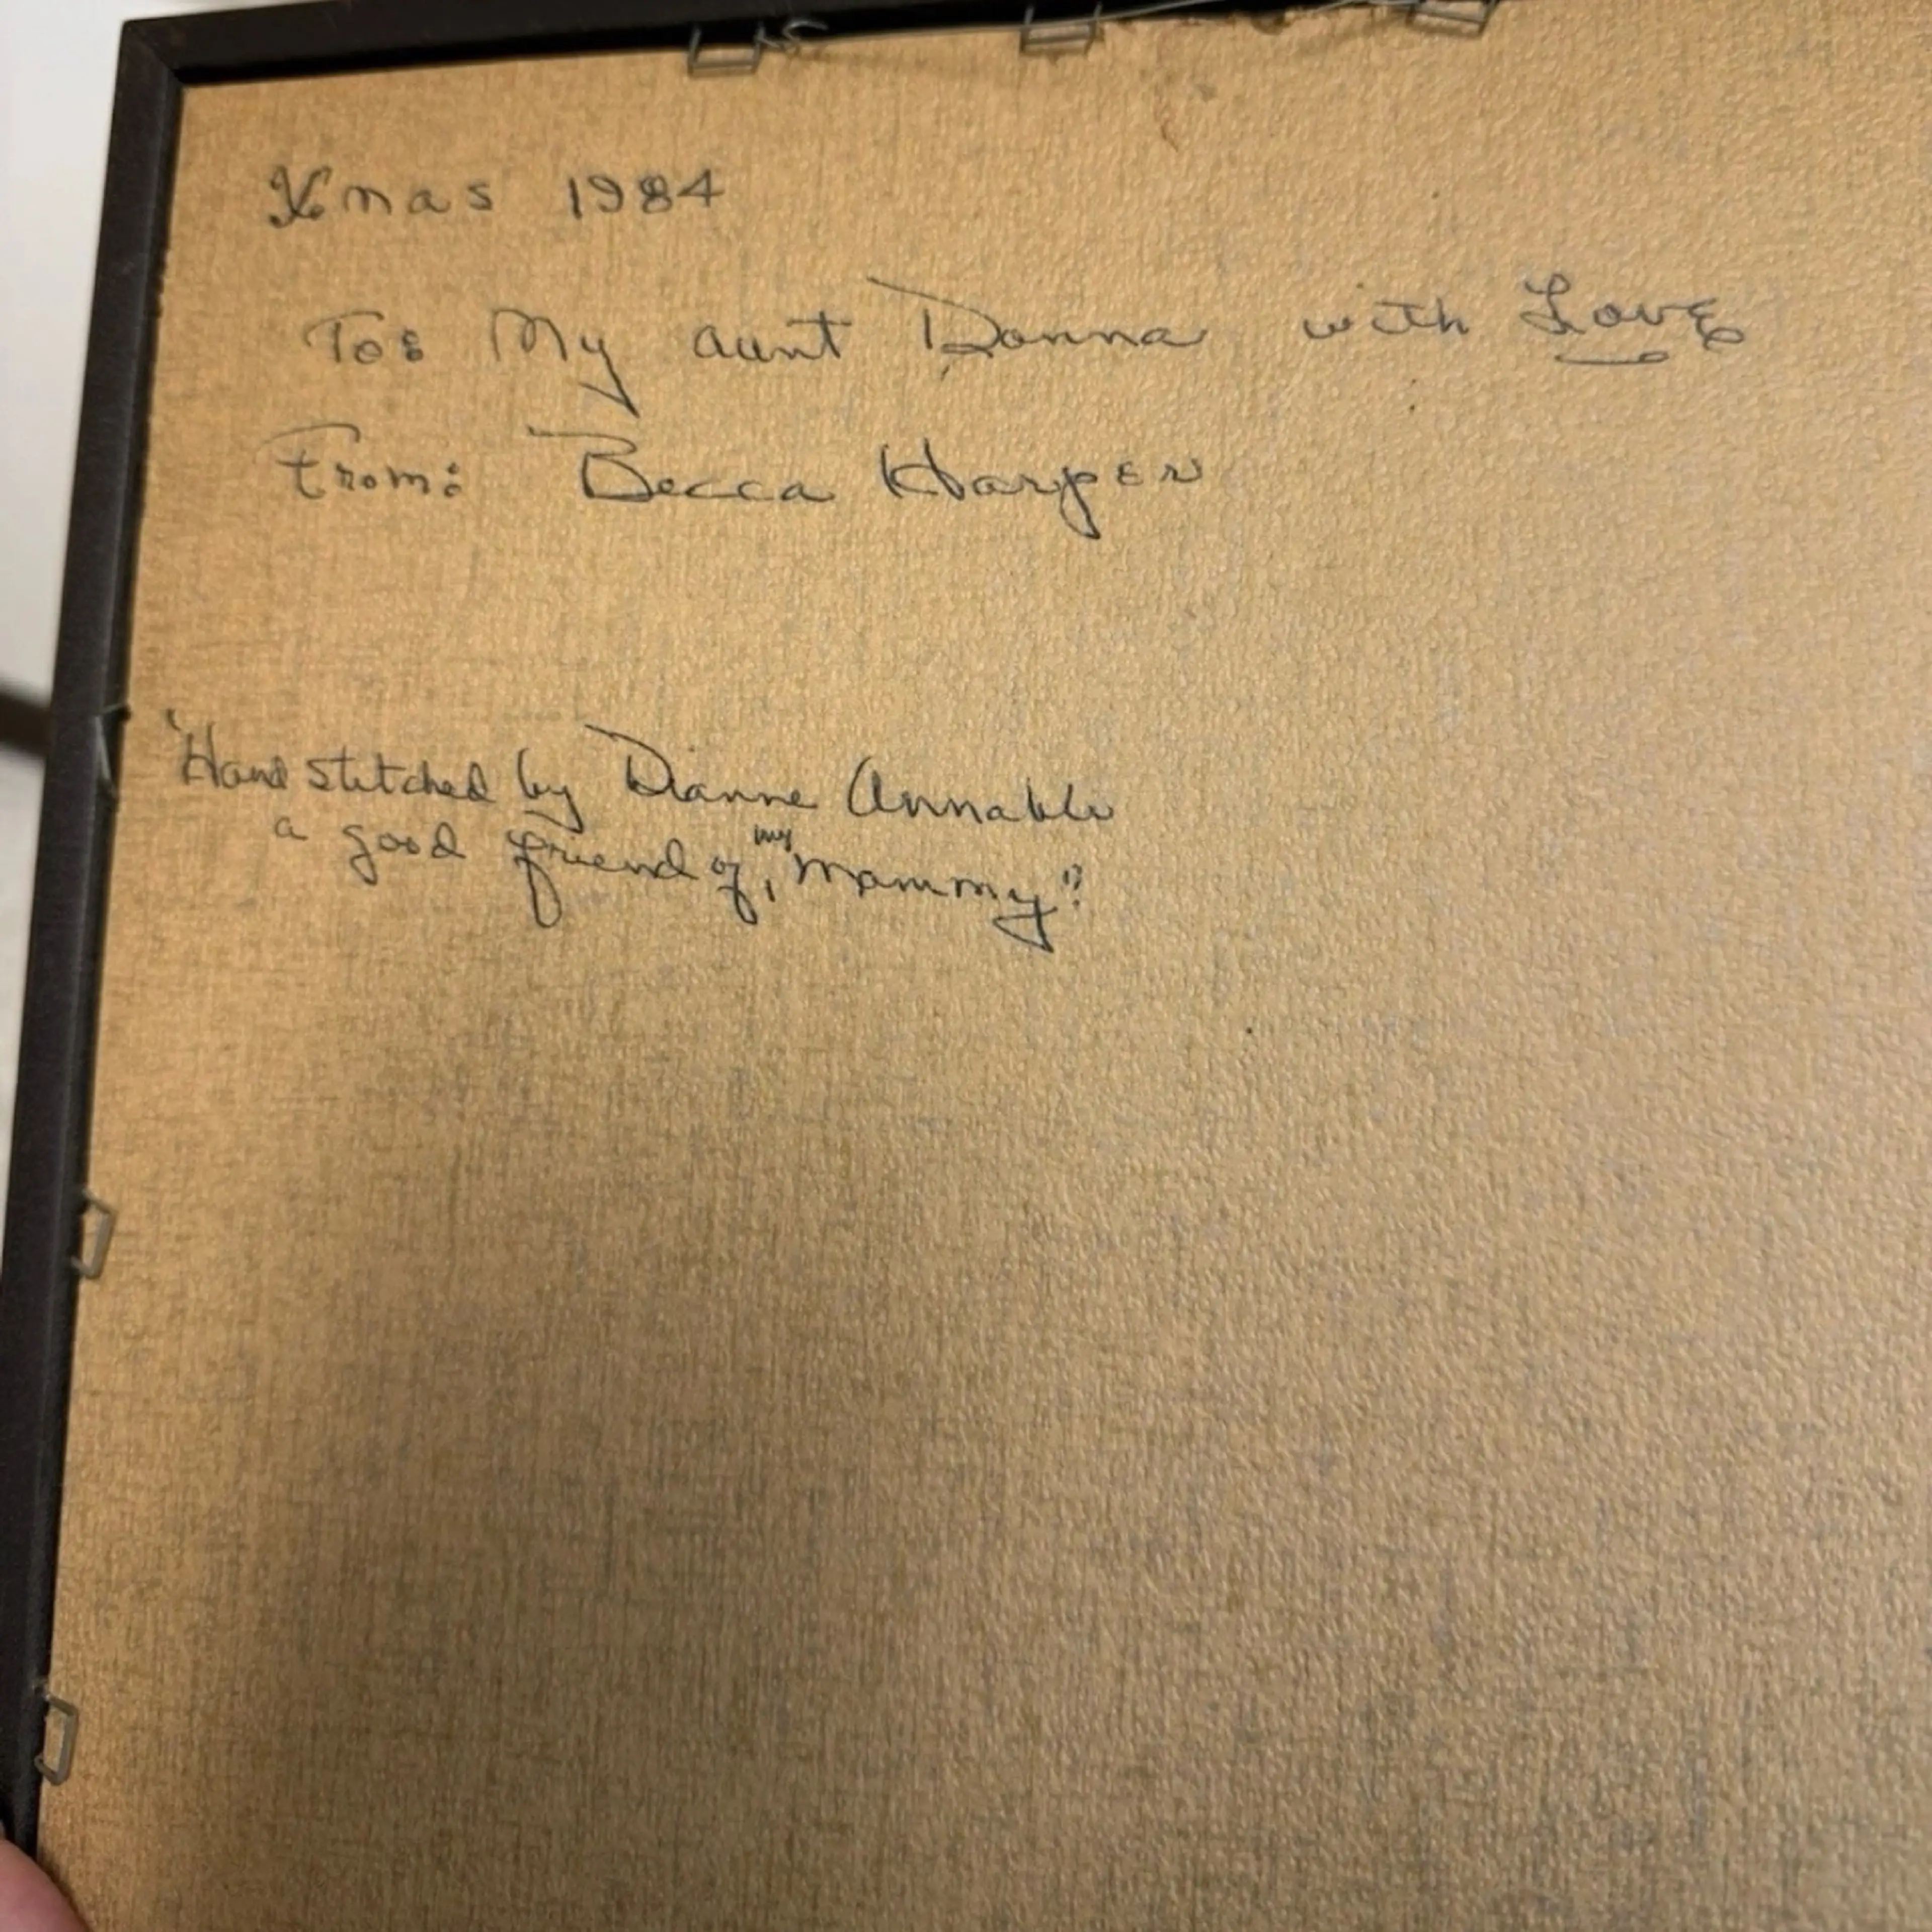 Xmas 1984
To: My aunt Donna with Love
From: Becca Harper
"Hand stitched by Dianne Annable
a good friend of my "Mammy"